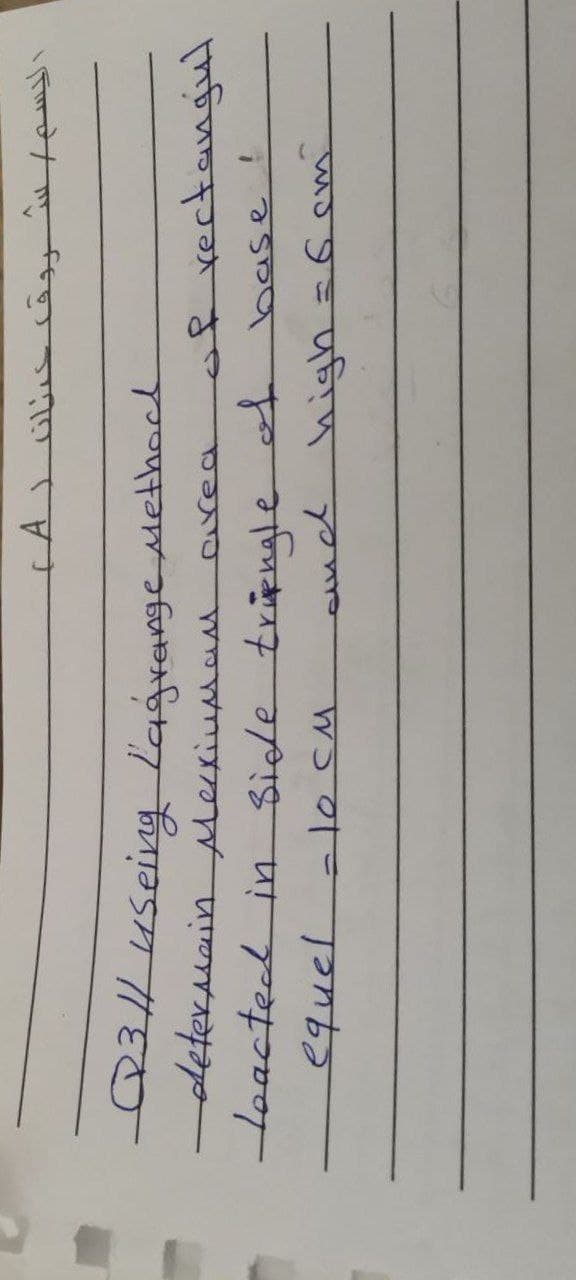 (A)
Q3// useing Lagrange Method
determain Maxiumam area of rectangul
loacted in side triangle of base
equel =10 cm and high = 6 cm